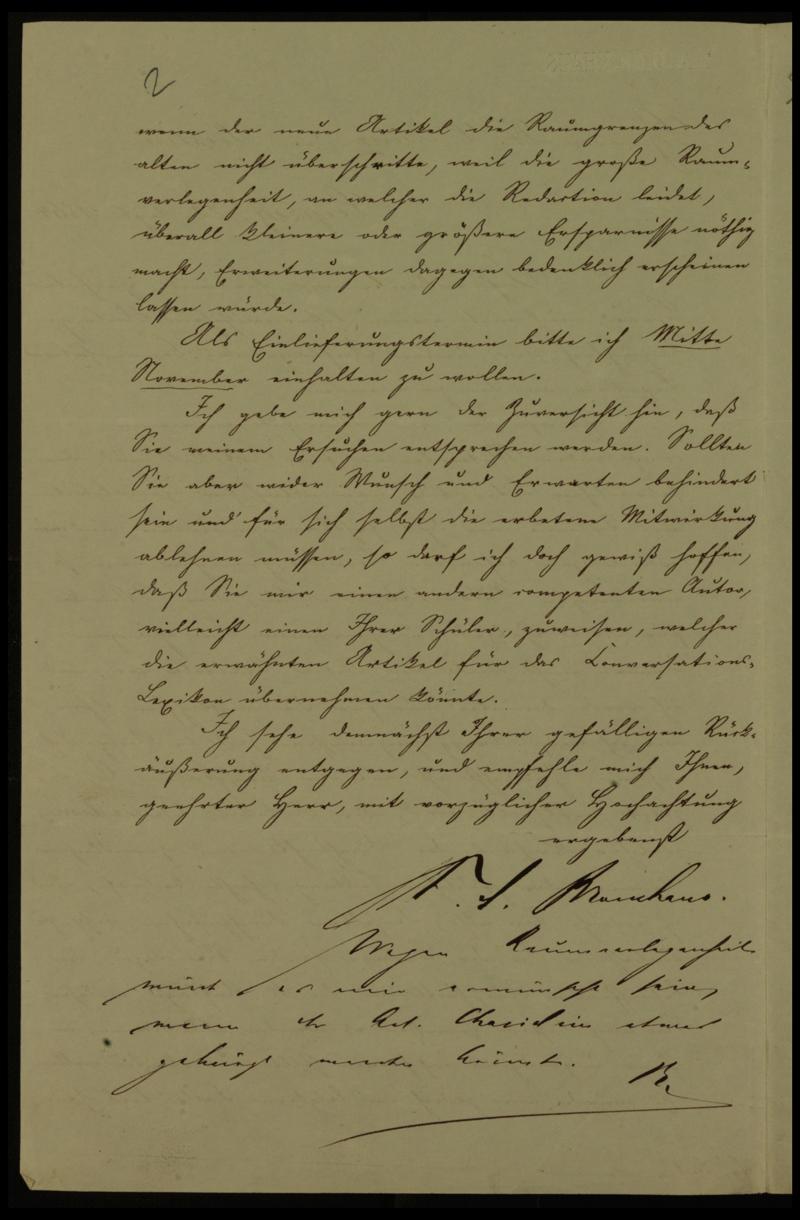 2
wenn der neue Artikel die Raumgrenzen des
alten nicht überschritte, weil die große Raum-
verlegenheit, an welcher die Redaction leidet,
überall kleinere oder größere Ersparnisse nöthig
macht, Erweiterungen dagegen bedenklich erscheinen
lassen würde.
Als Einlieferungstermin bitte ich Mitte
November einhalten zu wollen.
Ich gebe mich gern der Zuversicht hin, daß
Sie meinem Ersuchen entsprechen werden. Sollten
Sie aber wider Wunsch und Erwarten behindert
sein und für sich selbst die erbetene Mitwirkung
ablehnen müssen, so darf ich doch gewiß hoffen,
daß Sie mir einen andern competenten Autor,
vielleicht einen Ihrer Schüler, zuweisen, welcher
die erwähnten Artikel für das Conversations-
Lexikon übernehmen könnte.
Ich sehe demnächst Ihrer gefälligen Rück-
äußerung entgegen, und empfehle mich Ihnen,
geehrter Herr, mit vorzüglicher Hochachtung
ergebenst
F. A. Brockhaus.
Wegen Raumverlegenheit
würde es mir erwünscht sein,
wenn der Art. Chasidim etwas
gekürzt werden könnte.
B.